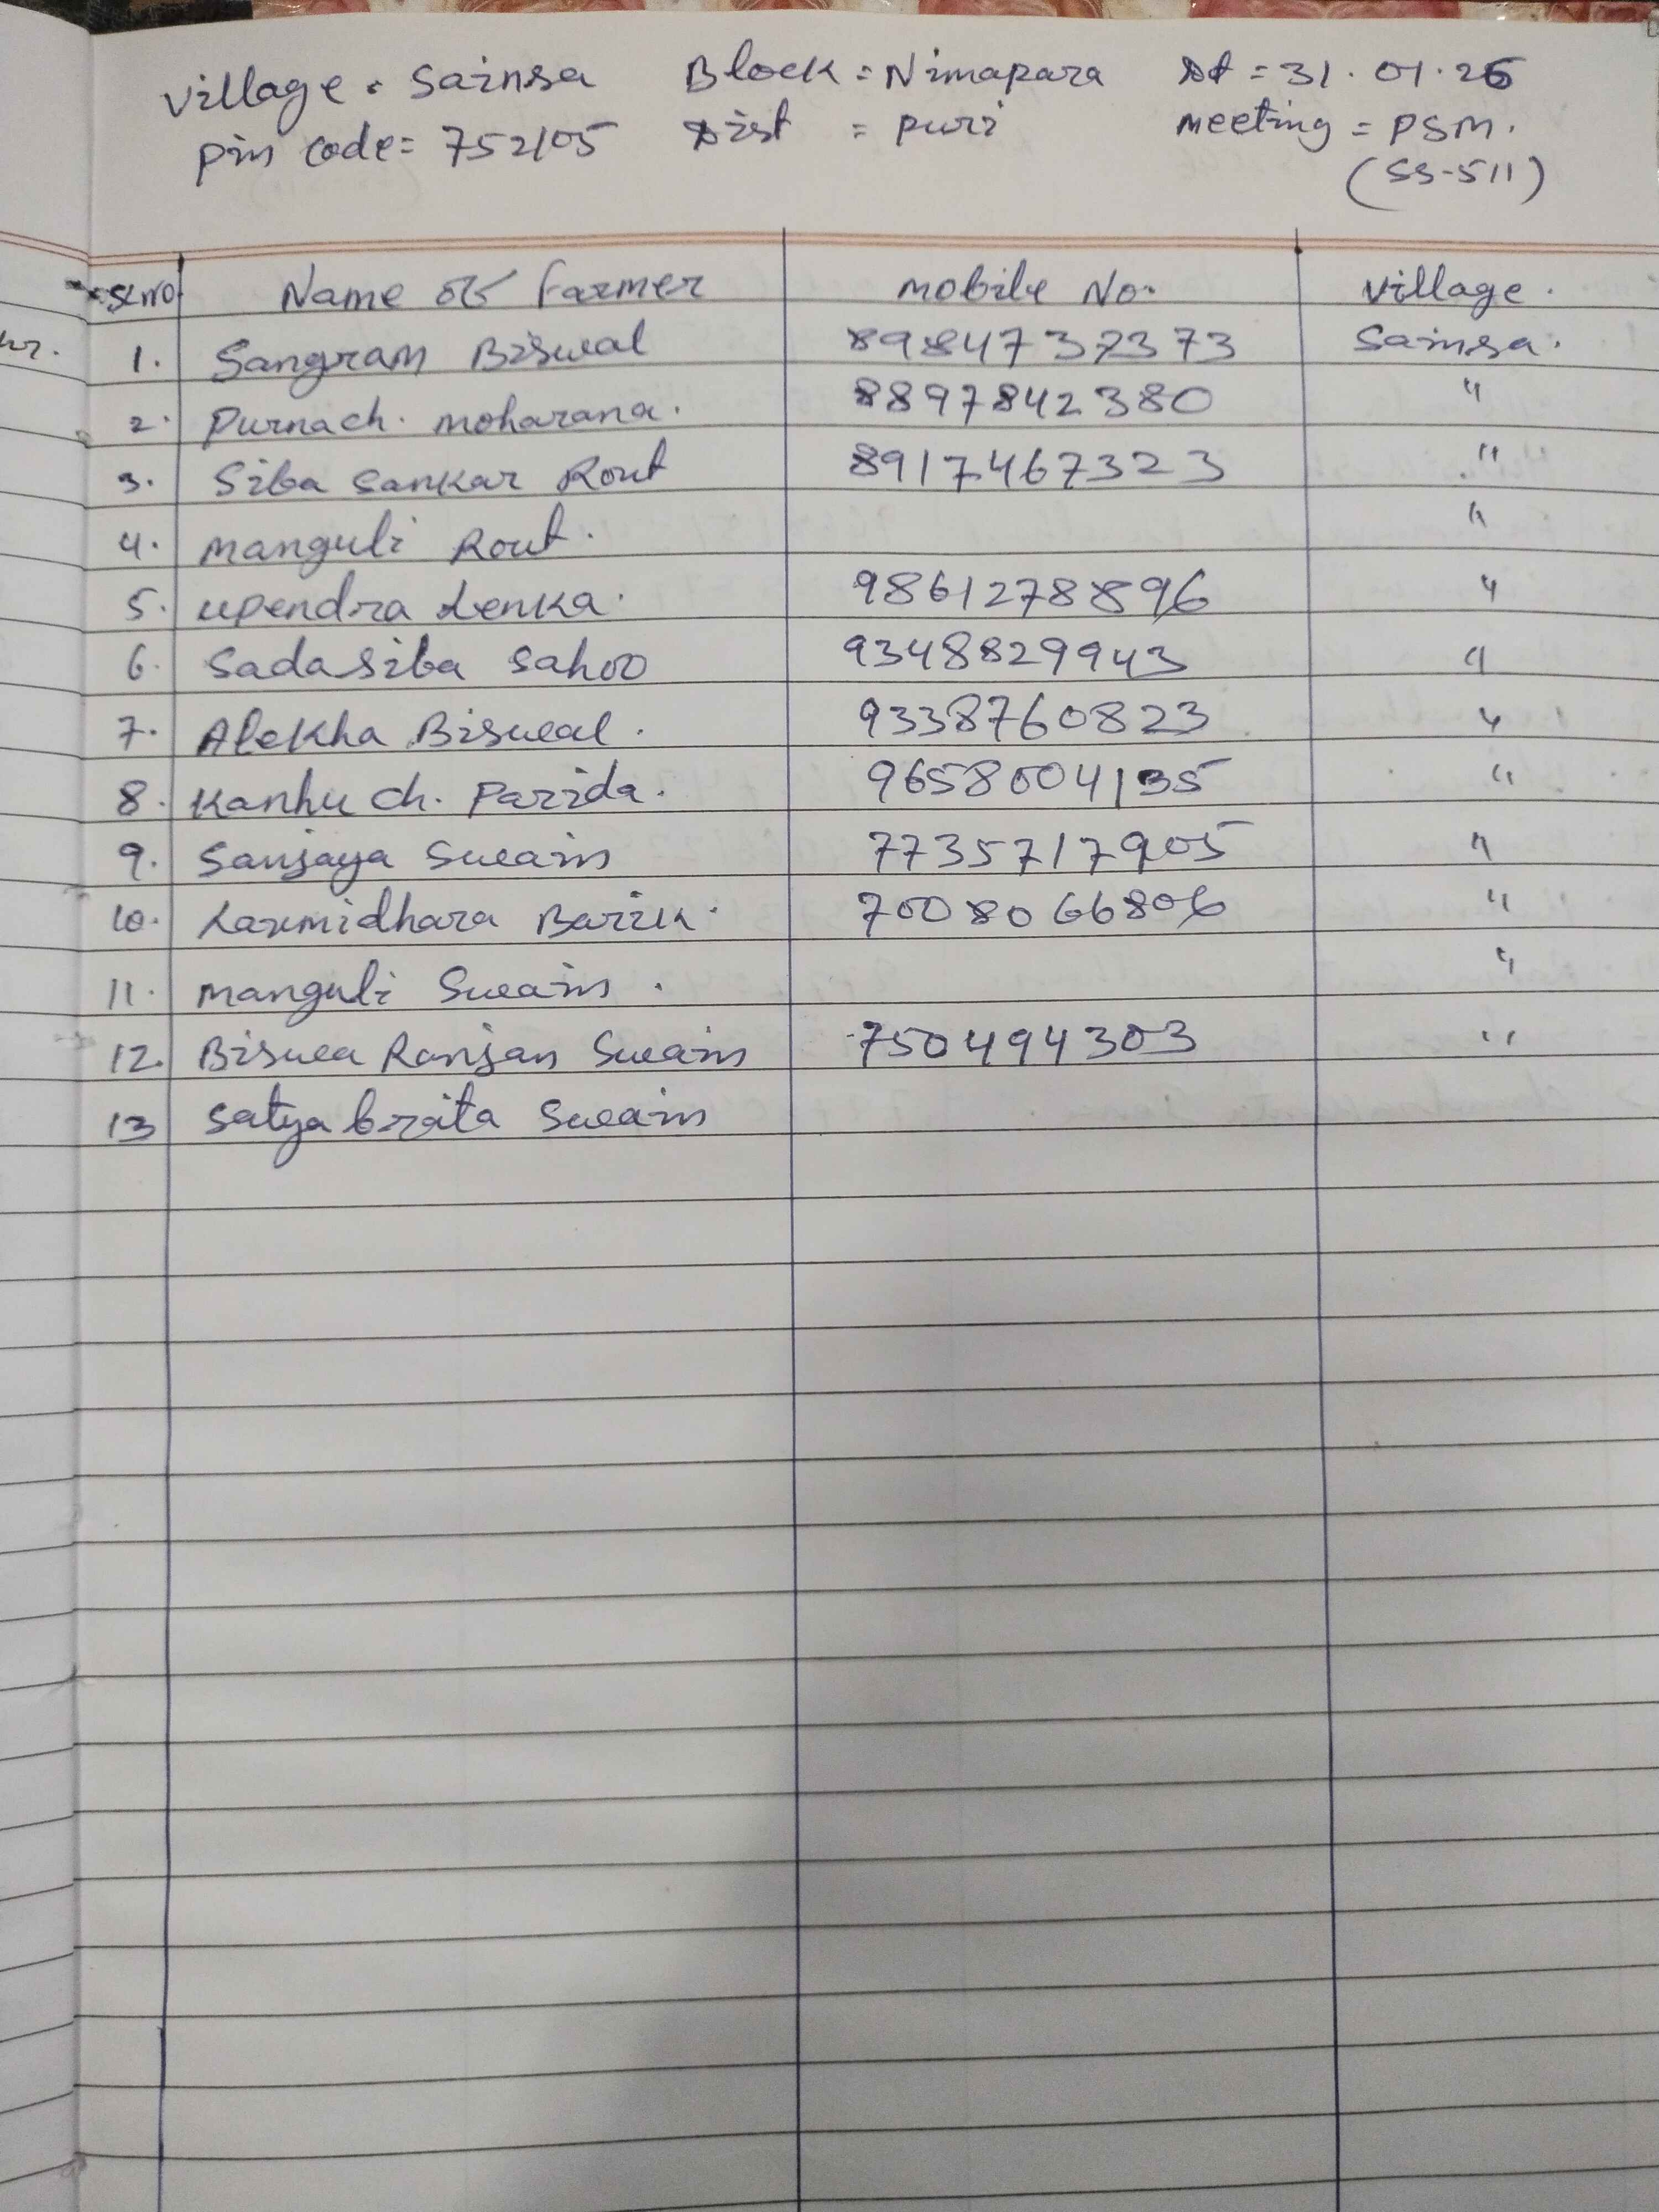 Village = Sainsa Block = Nimapara Dt = 31.01.26
Pin code = 752105 Dist = puri meeting = PSM.
(SS-511)
Sl.no Name of Farmer mobile No. village.
1. Sangram Biswal 8984732373 Sainsa.
2. Purnach. moharana. 8897842380 "
3. Siba Sankar Rout 8917467323 "
4. Manguli Rout. "
5. upendra Lenka. 9861278896 "
6. Sadasiba Sahoo 9348829943 "
7. Alekha Biswal. 9338760823 "
8. Kanhu ch. Parida. 9658004135 "
9. Sanjaya Swain 7735717905 "
10. Laxmidhara Barik. 7008066806 "
11. Manguli Swain. "
12. Biswa Ranjan Swain 750494303 "
13 Satya brata Swain